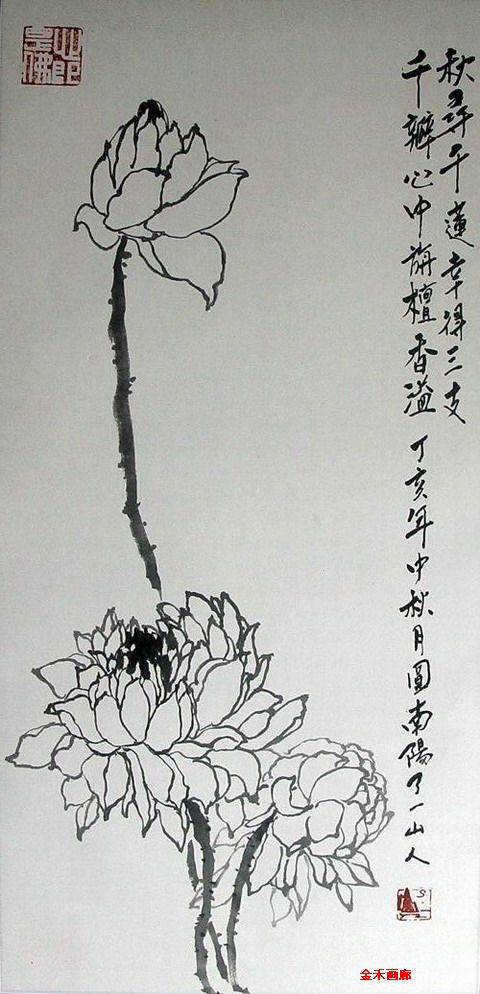 秋尋千蓮幸得三支
千瓣心中旃檀香溢 丁亥年中秋月圓南陽了一山人
金禾画廊